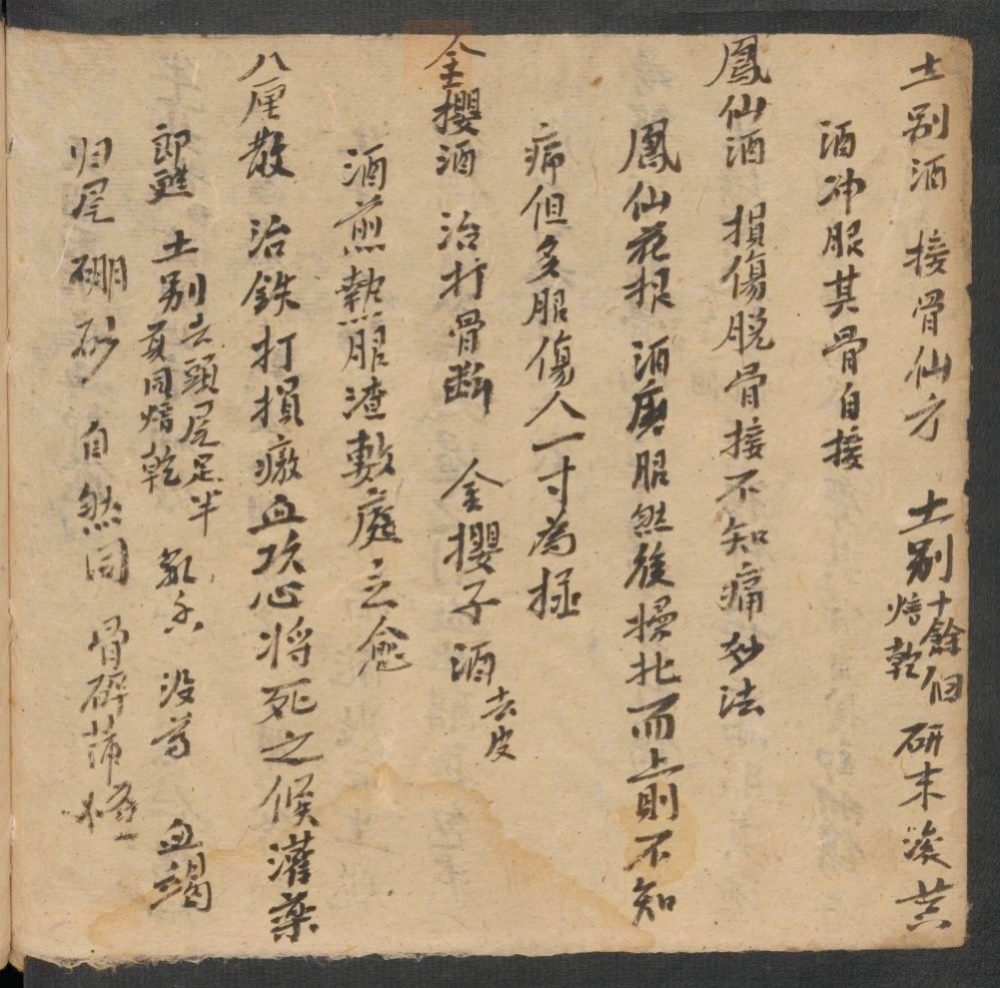 土别酒 接骨仙方 土别十餘個焙乾 研末
酒冲服其骨自接
鳳仙酒 損傷脱骨接不知痛妙法
鳳仙花根 酒磨服然後操北而上則不知
痛但多服傷人一寸為挃
金攖酒 治打骨断 金攖子酒去皮
酒煎熱服渣敷處立愈
八厘散 治鉄打損瘀血攻心将死之候灌藥
即甦 土别去頭尾足半頁同焙乾 乳香 没药 血竭
归尾 硼砂 自然同 骨碎蒲